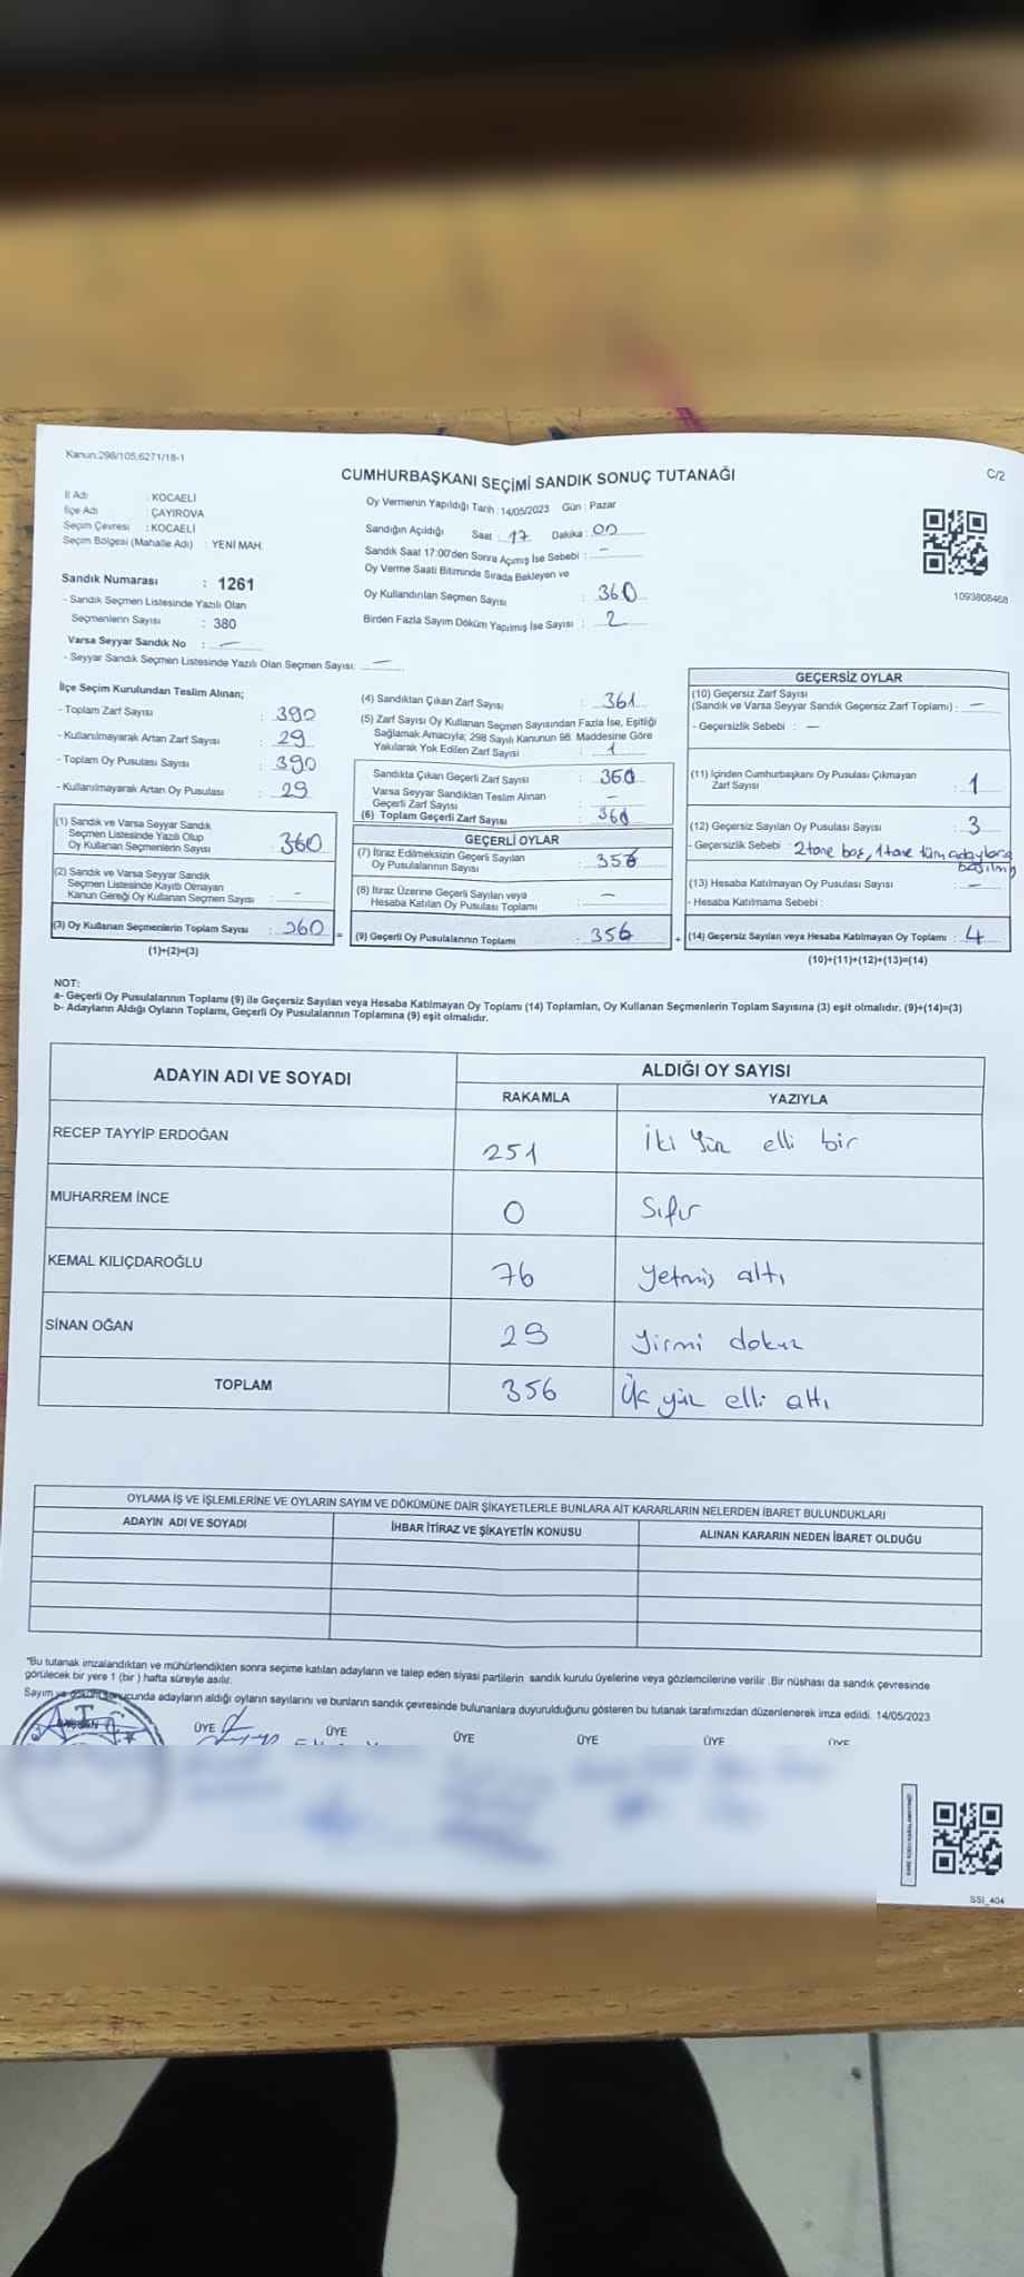 Kanun:298/105,6271/18-1
CUMHURBAŞKANI SEÇİMİ SANDIK SONUÇ TUTANAĞI
C/2
İl Adı : KOCAELİ
İlçe Adı : ÇAYIROVA
Seçim Çevresi : KOCAELİ
Seçim Bölgesi (Mahalle Adı) : YENİ MAH.
Oy Vermenin Yapıldığı Tarih : 14/05/2023 Gün : Pazar
Sandığın Açıldığı Saat : 17 Dakika : 00
Sandık Saat 17:00'den Sonra Açımış İse Sebebi : -
Oy Verme Saati Bitiminde Sırada Bekleyen ve
Oy Kullandırılan Seçmen Sayısı : 360
Birden Fazla Sayım Döküm Yapılmış İse Sayısı : 2
1093808468
Sandık Numarası : 1261
- Sandık Seçmen Listesinde Yazılı Olan
Seçmenlerin Sayısı : 380
Varsa Seyyar Sandık No : -
- Seyyar Sandık Seçmen Listesinde Yazılı Olan Seçmen Sayısı: -
İlçe Seçim Kurulundan Teslim Alınan;
- Toplam Zarf Sayısı : 390
- Kullanılmayarak Artan Zarf Sayısı : 29
- Toplam Oy Pusulası Sayısı : 390
- Kullanılmayarak Artan Oy Pusulası : 29
(1) Sandık ve Varsa Seyyar Sandık
Seçmen Listesinde Yazılı Olup
Oy Kullanan Seçmenlerin Sayısı : 360
(2) Sandık ve Varsa Seyyar Sandık
Seçmen Listesinde Kayıtlı Olmayan
Kanun Gereği Oy Kullanan Seçmen Sayısı : -
(3) Oy Kullanan Seçmenlerin Toplam Sayısı : 360
(1)+(2)=(3)
(4) Sandıktan Çıkan Zarf Sayısı : 361
(5) Zarf Sayısı Oy Kullanan Seçmen Sayısından Fazla İse, Eşitliği
Sağlamak Amacıyla; 298 Sayılı Kanunun 98. Maddesine Göre
Yakılarak Yok Edilen Zarf Sayısı : 1
Sandıkta Çıkan Geçerli Zarf Sayısı : 360
Varsa Seyyar Sandıktan Teslim Alınan
Geçerli Zarf Sayısı : -
(6) Toplam Geçerli Zarf Sayısı : 360
GEÇERLİ OYLAR
(7) İtiraz Edilmeksizin Geçerli Sayılan
Oy Pusulalarının Sayısı : 356
(8) İtiraz Üzerine Geçerli Sayılan veya
Hesaba Katılan Oy Pusulası Toplamı : -
= (9) Geçerli Oy Pusulalarının Toplamı : 356
GEÇERSİZ OYLAR
(10) Geçersiz Zarf Sayısı
(Sandık ve Varsa Seyyar Sandık Geçersiz Zarf Toplamı) : -
- Geçersizlik Sebebi : -
(11) İçinden Cumhurbaşkanı Oy Pusulası Çıkmayan
Zarf Sayısı : 1
(12) Geçersiz Sayılan Oy Pusulası Sayısı : 3
- Geçersizlik Sebebi : 2 tane boş, 1 tane tüm adaylara
basılmış
(13) Hesaba Katılmayan Oy Pusulası Sayısı : -
- Hesaba Katılmama Sebebi :
+ (14) Geçersiz Sayılan veya Hesaba Katılmayan Oy Toplamı : 4
(10)+(11)+(12)+(13)=(14)
NOT:
a- Geçerli Oy Pusulalarının Toplamı (9) ile Geçersiz Sayılan veya Hesaba Katılmayan Oy Toplamı (14) Toplamları, Oy Kullanan Seçmenlerin Toplam Sayısına (3) eşit olmalıdır. (9)+(14)=(3)
b- Adayların Aldığı Oyların Toplamı, Geçerli Oy Pusulalarının Toplamına (9) eşit olmalıdır.
ADAYIN ADI VE SOYADI
ALDIĞI OY SAYISI
RAKAMLA YAZIYLA
RECEP TAYYİP ERDOĞAN 251 İki yüz elli bir
MUHARREM İNCE 0 Sıfır
KEMAL KILIÇDAROĞLU 76 Yetmiş altı
SİNAN OĞAN 29 Yirmi dokuz
TOPLAM 356 Üç yüz elli altı
OYLAMA İŞ VE İŞLEMLERİNE VE OYLARIN SAYIM VE DÖKÜMÜNE DAİR ŞİKAYETLERLE BUNLARA AİT KARARLARIN NELERDEN İBARET BULUNDUKLARI
ADAYIN ADI VE SOYADI İHBAR İTİRAZ VE ŞİKAYETİN KONUSU ALINAN KARARIN NEDEN İBARET OLDUĞU
"Bu tutanak imzalandıktan ve mühürlendikten sonra seçime katılan adayların ve talep eden siyasi partilerin sandık kurulu üyelerine veya gözlemcilerine verilir. Bir nüshası da sandık çevresinde
görülecek bir yere 1 (bir) hafta süreyle asılır.
Sayım ve sonucunda adayların aldığı oyların sayılarını ve bunların sandık çevresinde bulunanlara duyurulduğunu gösteren bu tutanak tarafımızdan düzenlenerek imza edildi. 14/05/2023
ÜYE ÜYE ÜYE ÜYE ÜYE ÜYE
SSİ_404